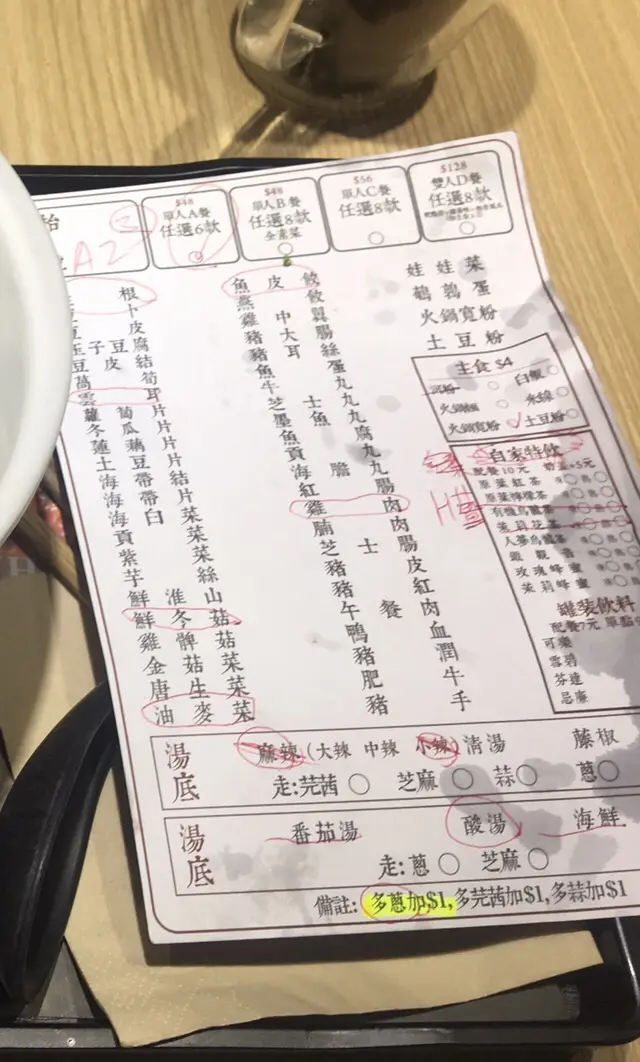 $48
單人A餐
任選6款
$48
單人B餐
任選8款
全素菜
$56
單人C餐
任選8款
$128
雙人D餐
任選8款
A2
玉子豆腐
豆皮結
萵筍
雲耳
蘿蔔片
冬瓜片
蓮藕片
土豆片
海帶結
海帶片
海白菜
貢菜
紫菜
芋絲
鮮淮山
鮮冬菇
雞髀菇
金菇菜
唐生菜
油麥菜
魚皮餃
燕餃
雞中翼
豬大腸
豬耳絲
魚蛋
牛丸
芝士丸
墨魚丸
魚腐
貢丸
海膽丸
紅腸
雞肉
腩肉
芝士腸
豬皮
豬紅
午餐肉
鴨血
豬潤
肥牛
豬手
娃娃菜
鵪鶉蛋
火鍋寬粉
土豆粉
主食 $4
白飯
米線
火鍋寬粉 土豆粉
自家特飲
配餐10元
原葉紅茶
原葉檸檬茶
有機烏龍茶
茉莉花茶
人參烏龍茶
鐵觀音
玫瑰蜂蜜
茉莉蜂蜜
罐裝飲料
配餐7元 單點9
可樂
雪碧
芬達
忌廉
湯底
麻辣(大辣 中辣 小辣) 清湯 藤椒
走:芫茜 芝麻 蒜 蔥
湯底
番茄湯 酸湯 海鮮
走:蔥 芝麻
備註: 多蔥加$1,多芫茜加$1,多蒜加$1